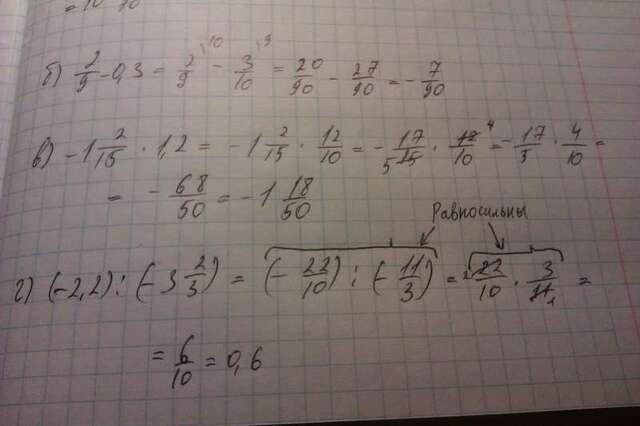 = 10 70
б) 2/9 - 0,3 = 2/9 ^10 - 3/10 ^9 = 20/90 - 27/90 = - 7/90
в) -1 2/15 · 1,2 = -1 2/15 · 12/10 = - 17/15 5 · 12/10 4 = - 17/5 · 4/10 =
= - 68/50 = -1 18/50
Равносильны
г) (-2,2) : (-3 2/3) = (- 22/10) : (- 11/3) = 2 22/10 · 3/11 1 =
= 6/10 = 0,6